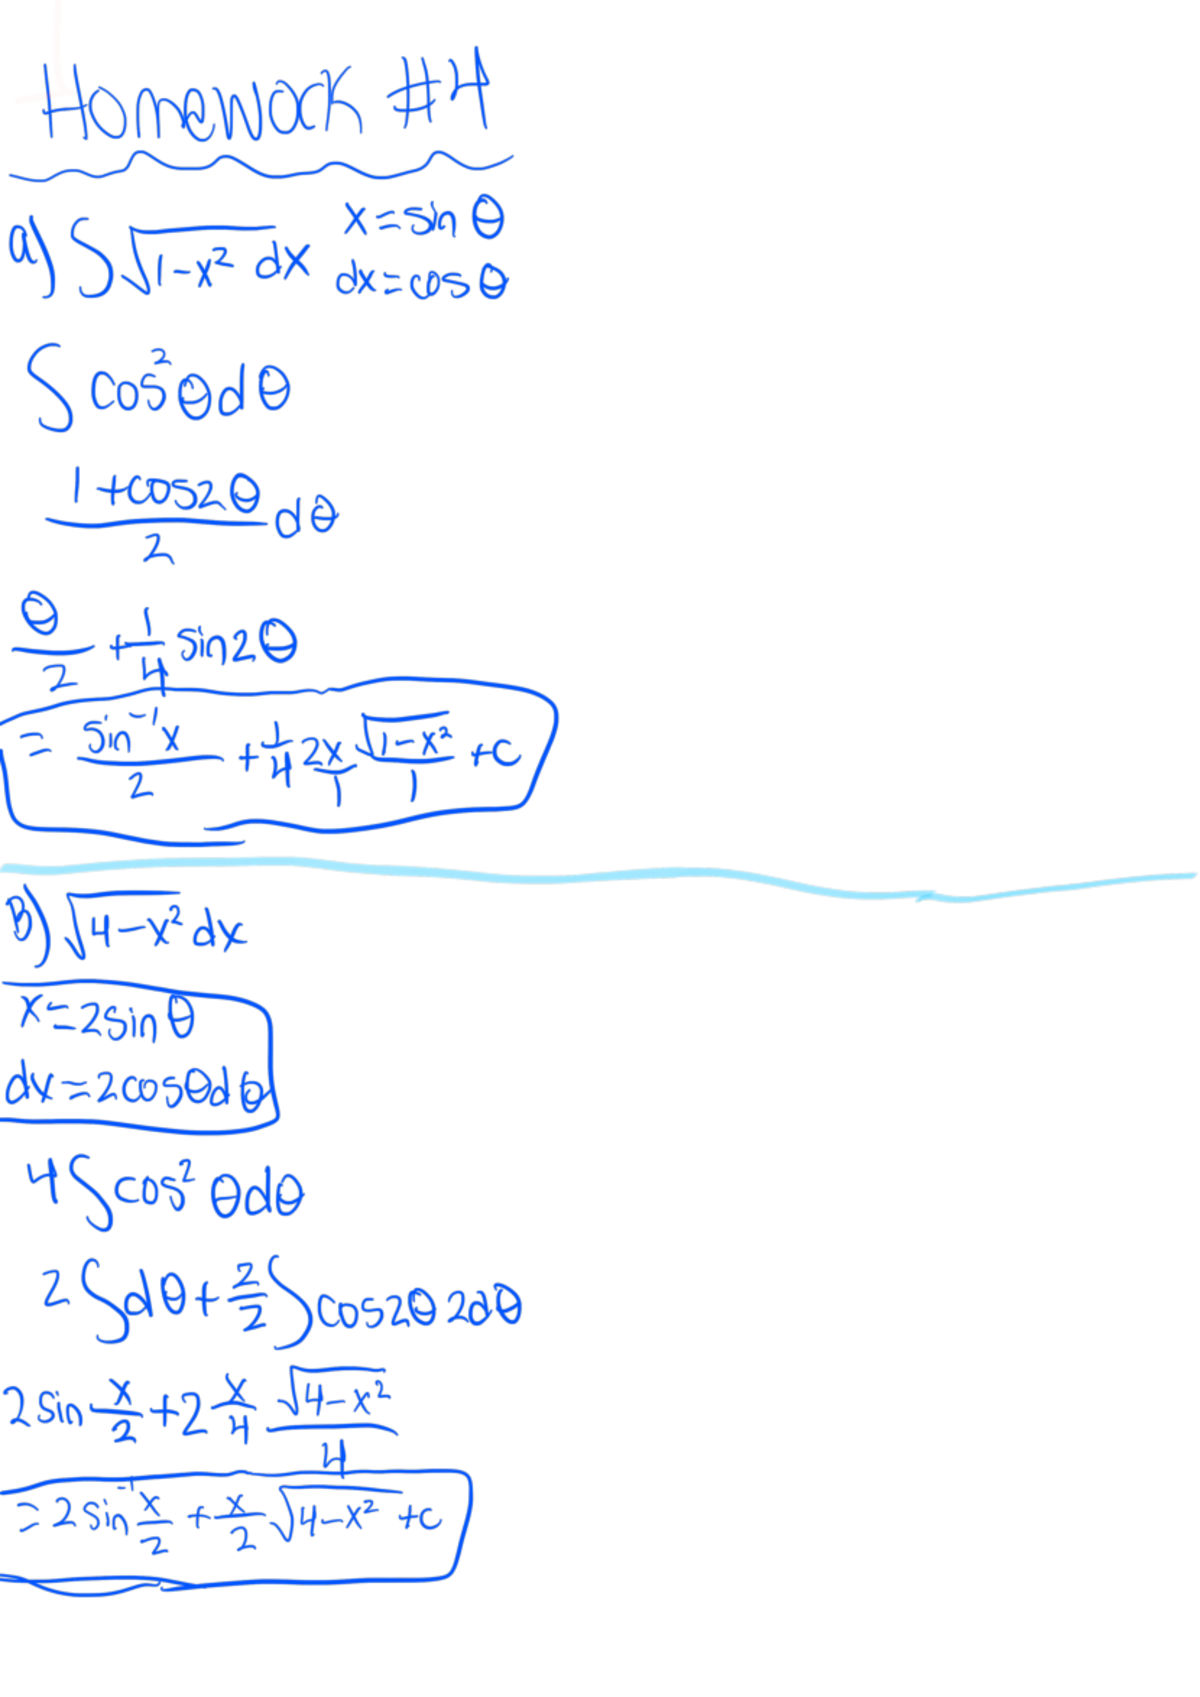 Homework #4
a) ∫√(1-x²) dx x=sin θ
dx=cos θ
∫ cos²θdθ
(1+cos2θ)/2 dθ
θ/2 + 1/4 sin2θ
= (sin⁻¹x)/2 + 1/4 2x/1 √(1-x²)/1 +c
B) √(4-x²) dx
x=2sin θ
dx=2cosθdθ
4∫cos² θdθ
2∫dθ + 2/2 ∫cos2θ 2dθ
2 sin x/2 + 2 x/4 √(4-x²)/4
= 2 sin⁻¹ x/2 + x/2 √(4-x²) +c